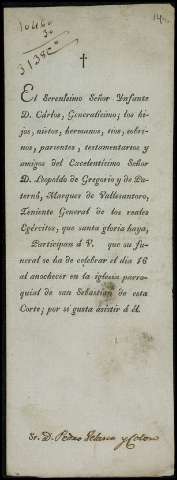 †
El Serenísimo Señor Ynfante
D. Cárlos, Generalísimo; los hi-
jos, nietos, hermanos, tios, sobri-
nos, parientes, testamentarios y
amigos del Excelentísimo Señor
D. Leopoldo de Gregorio y de Pa-
ternò, Marques de Vallesantoro,
Teniente General de los reales
Egércitos, que santa gloria haya,
Participan á V. que su fu-
neral se ha de celebrar el dia 16
al anochecer en la iglesia parro-
quial de san Sebastian de esta
Corte; por si gusta asistir á él.
Sr. D. Pedro Velasco y Colon